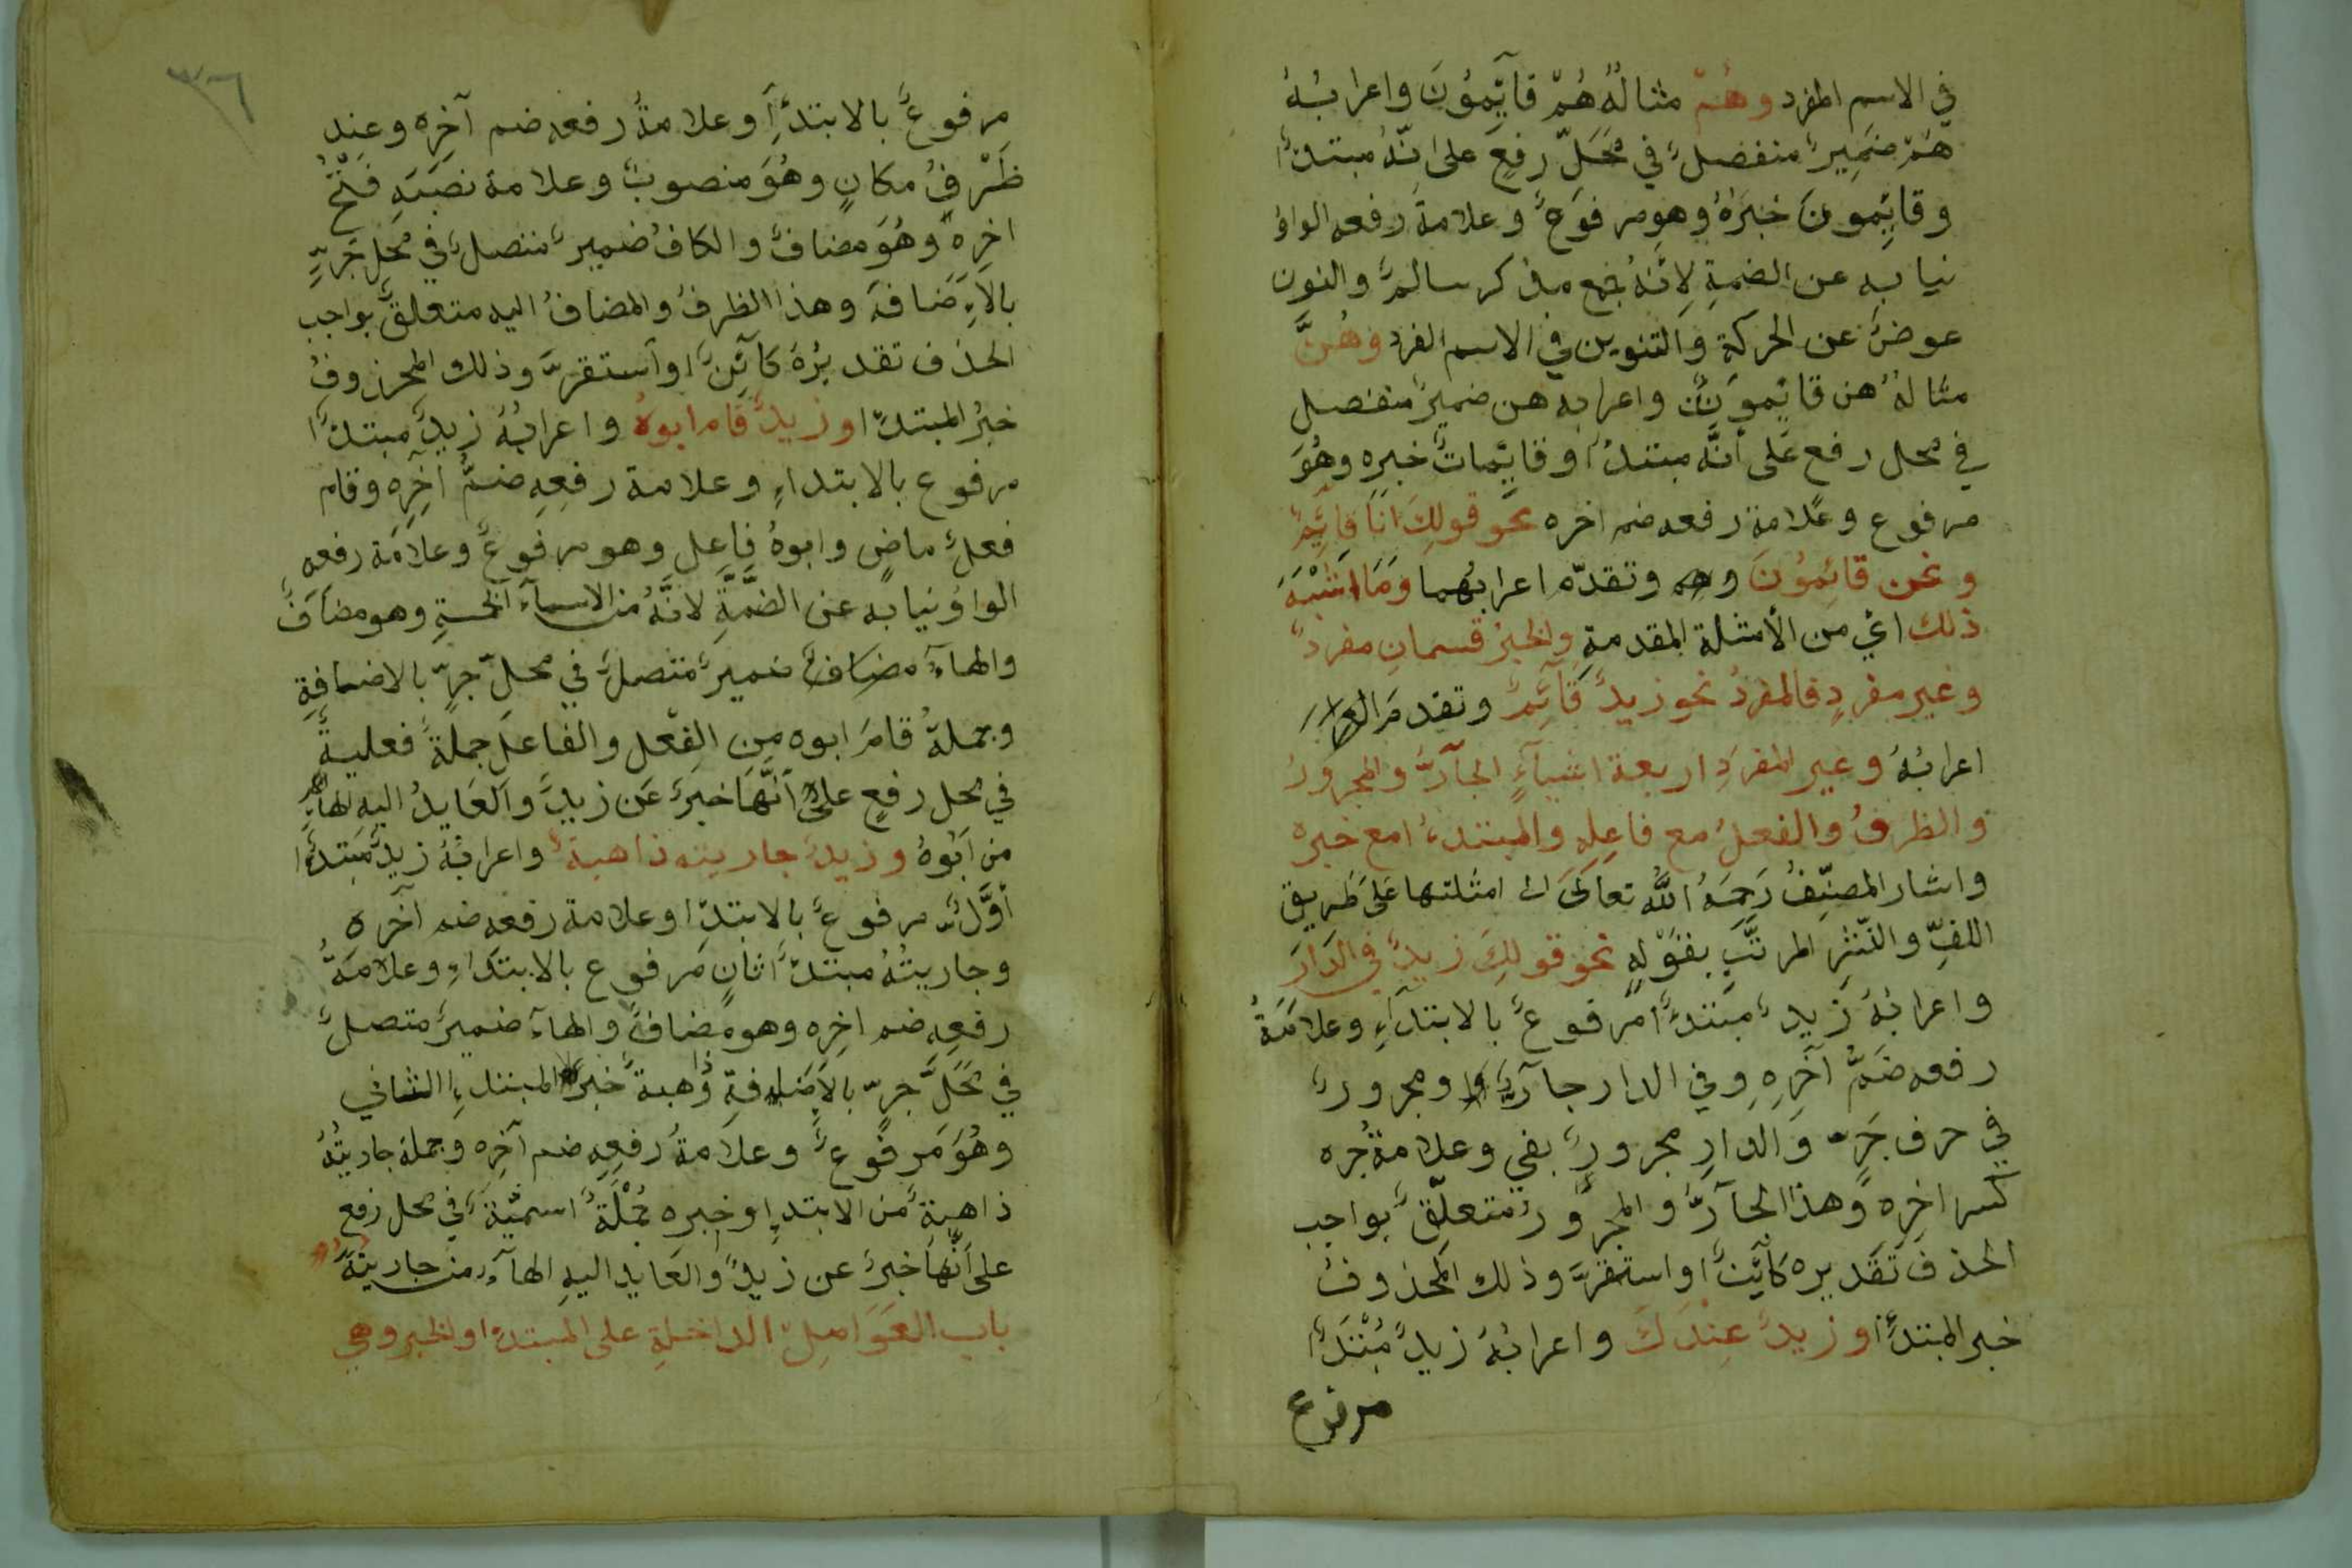 في الاسم المفرد وهُمْ مثالهُ هُمْ قآيِّمُوُنَ واعرابُهُ
هُمْ ضمِيرٌ منفصلٌ في مَحَلّ رفعٍ على انّهُ مبتدأ
وقايِّمونَ خبرَهُ وهو مرفوعٌ وعلامة رفعه الواوُ
نيابه عن الضمةِ لِانّهُ جمع مذكر سالمٌ والنون
عوضٌ عن الحركةِ والتنوين في الاسم المفرد وهُنَّ
مثالهُ هن قايموتٌ واعرابه هن ضميرٌ منفصل
في محل رفع عَلى أنَّه مبتدأ وقايِّماتٌ خبره وهُوَ
مرفوع وعَلامة رفعه ضم اخره نحَو قولِكَ انَا قايَّمٌ
ونحن قائِمُوُنَ وتقدّم اعرابُهما وَمَا اشْبَهَ
ذلك ائي من الأمثلة المقدمةِ والخبرُ قسمانِ مفردٌ
وغير مفردٍ فالمفردُ نحو زيدٌ قآئِّمٌ وتقدمَ
اعرابُهُ وغير المفردِ اربعة اشيآءٍ الجآرُّ والمجرورُ
والظرفُ والفعلُ مع فاعِلِهِ والمبتدأ مع خبره
واشار المصنِّفُ رَحِمَهُ اللَّه تعالىَ الى امثلتها عَلىَ طَريق
اللفِّ والنّثرِ المرتَّبِ بقوْلِهِ نحَو قولِكَ زيدٌ في الدَارَ
واعرابُهُ زَيدٌ مبَتدأٌ مرفوعٌ بالابتدآءِ وعلامَةُ
رفعه ضَمُّ آخَرِهِ وفي الدار جآرٌ ومجرورٌ
في حرف جَرّ وَالدارِ مجرورٌ بفي وعلامةُ جره
كسر اخِرِهِ وهذا الجآرُّ والمجرُورُ متعلّقٌ بواجب
الحذف تَقديره كآيِّنٌ او استقرَّ وذلك المحذوفُ
خبر المبتدأ وزيدٌ عِنْدَكَ واعرابُهُ زيدٌ مُبْتَدأٌ
مرفوع
٣٦
مرفوعٌ بالابتدآءِ وعلامةُ رفعه ضم آخِرِه وعِند
ظَرْفُ مكانٍ وهُوَ منصوبٌ وعلامة نصَبَهِ فَتْحُ
اخِرِهِ وهُوَ مضافٌ والكافُ ضميرٌ متصلٌ في مَحَلِ جَرٍّ
بالاِضَافَه وهذا الظرفُ والمضافُ اليه متعلقٌ بواجب
الحذف تقديرُهُ كآئِنٌ او آستقرَّ وذلك المحزوفُ
خبرُ المبتدأ وزيدٌ قام ابوهُ واعرابُهُ زيدٌ مبتدأٌ
مرفوع بالابتداءِ وعلامة رفعِهِ ضمُّ آخِرِهِ وقام
فعلٌ ماضٍ وابوهُ فاعِل وهو مرفوعٌ وعلامَة رفعه
الواوُ نيابه عن الضمَّةِ لانَّهُ من الاسمآءِ الخمسةِ وهو مضَافٌ
والهآءُ مضاف ضميرٌ متصلٌ في محلِّ جرٍّ بالاضافةِ
وجملةُ قامَ ابوه مِن الفِعل والفاعلِ جملةٌ فعليةٌ
في محل رفعٍ علىَ اَنَّهَا خبرٌ عَن زيدٍ وآلعَايدُ اليه الهآء
من اَبُوهُ وزيدٌ جاريته ذاهبةٌ واعرابُهُ زيدٌ مُبَتدأٌ
أوَّلٌ مرفوعٌ بالابتدا وعلامة رفعِه ضم آخَره
وجاريتُهُ مبتدأٌ ثانٍ مَرفوع بالابتداءِ وعلامَةُ
رفعِه ضم اخِرِه وهو مضافٌ والهآء ضميرٌ متصلٌ
في مَحَلِّ جرّ بالاِضافةِ ذاهبةٌ خبرُ المبتدءِ الثاني
وهُوَ مَرفوعٌ وعلامةُ رفعِهِ ضم آخِرِه وَجملة جاريتُهُ
ذاهبةٌ من الابتدإ وخبره جُمْلَةٌ اسميَّةٌ في محل رفع
على اَنَّهَا خبرٌ عن زيدٍ والعَايد اليهِ الهآء من جاريتُهُ
باب العَوَامِلِ الداخلةِ على المبتدأ والخبر وهي